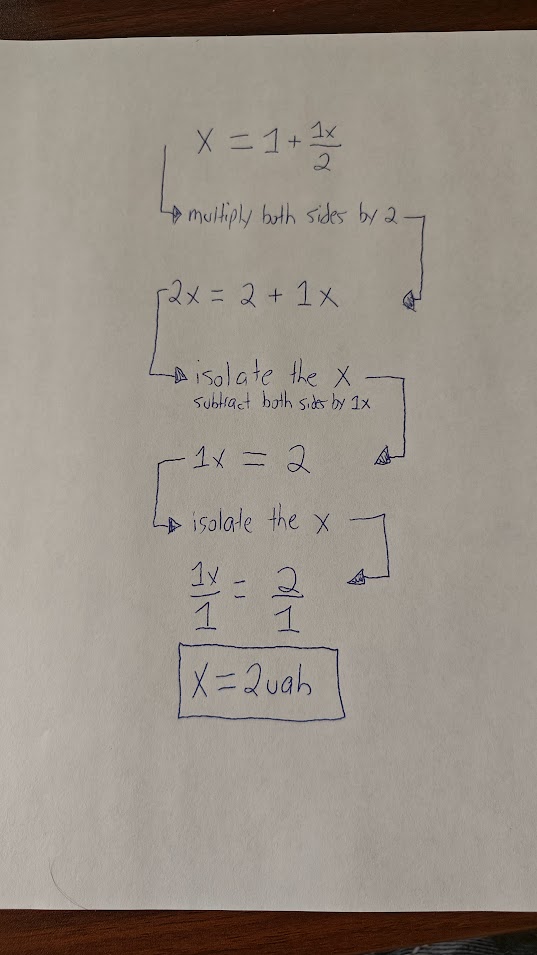 X = 1 + 1x/2
multiply both sides by 2
2x = 2 + 1x
isolate the X
subtract both sides by 1x
1x = 2
isolate the x
1x/1 = 2/1
X = 2uah